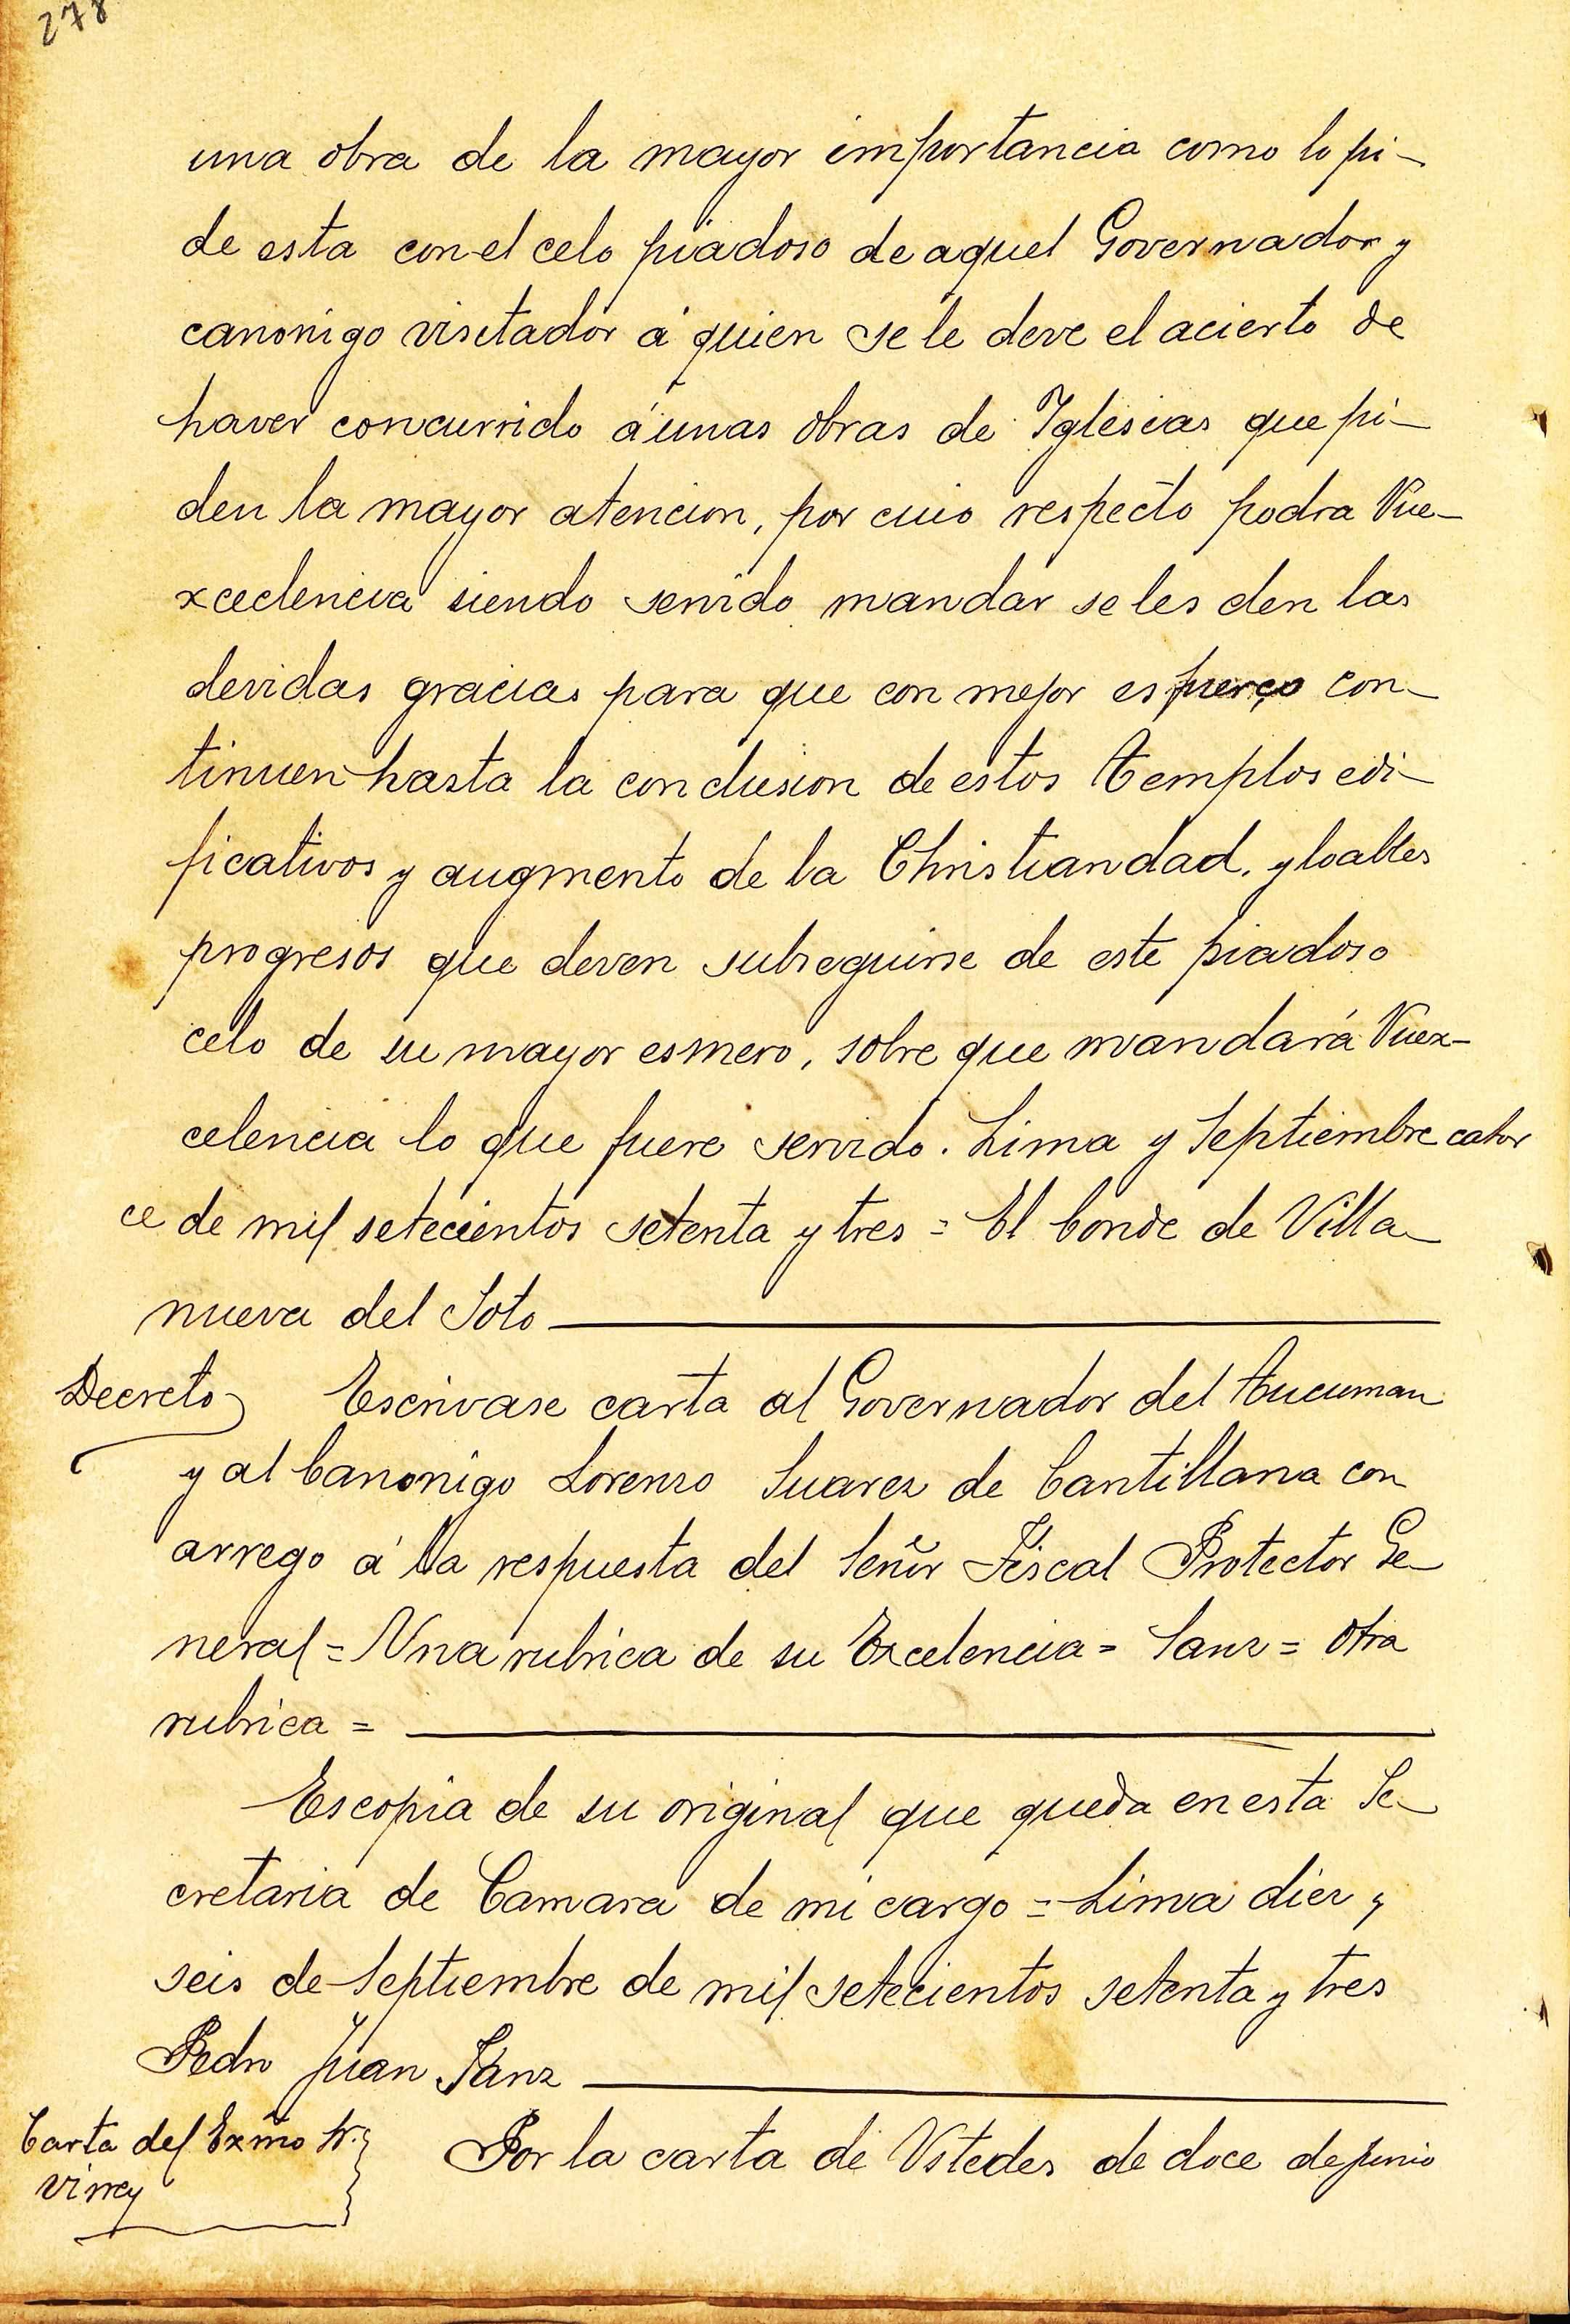 278
una obra de la mayor importancia como lo pi-
de esta con el celo piadoso de aquel Governador y
canonigo visitador á quien se le deve el acierto de
haver concurrido á unas obras de Iglesias que pi-
den la mayor atencion, por cuio respecto podra Vue-
xcelencia siendo servido mandar se les den las
devidas gracias para que con mejor esfuerço con-
tinuen hasta la conclusion de estos Templos edi-
ficativos y augmento de la Christiandad, y loables
progresos que deven subseguirse de este piadoso
celo de su mayor esmero, sobre que mandará Vuex-
celencia lo que fuere servido. Lima y Septiembre cator
ce de mil setecientos setenta y tres = El Conde de Villa-
nueva del Soto
Decreto Escrivase carta al Governador del Tucuman
y al Canonigo Lorenzo Suarez de Cantillana con
arrego á la respuesta del Señor Fiscal Protector Ge-
neral = Una rubrica de su Excelencia = Sanz = Otra
rubrica =
Es copia de su original que queda en esta Se-
cretaria de Camara de mi cargo = Lima diez y
seis de Septiembre de mil setecientos setenta y tres
Pedro Juan Sanz
Carta del Exmo Sr.
Virrey
Por la carta de Vstedes de doce de junio